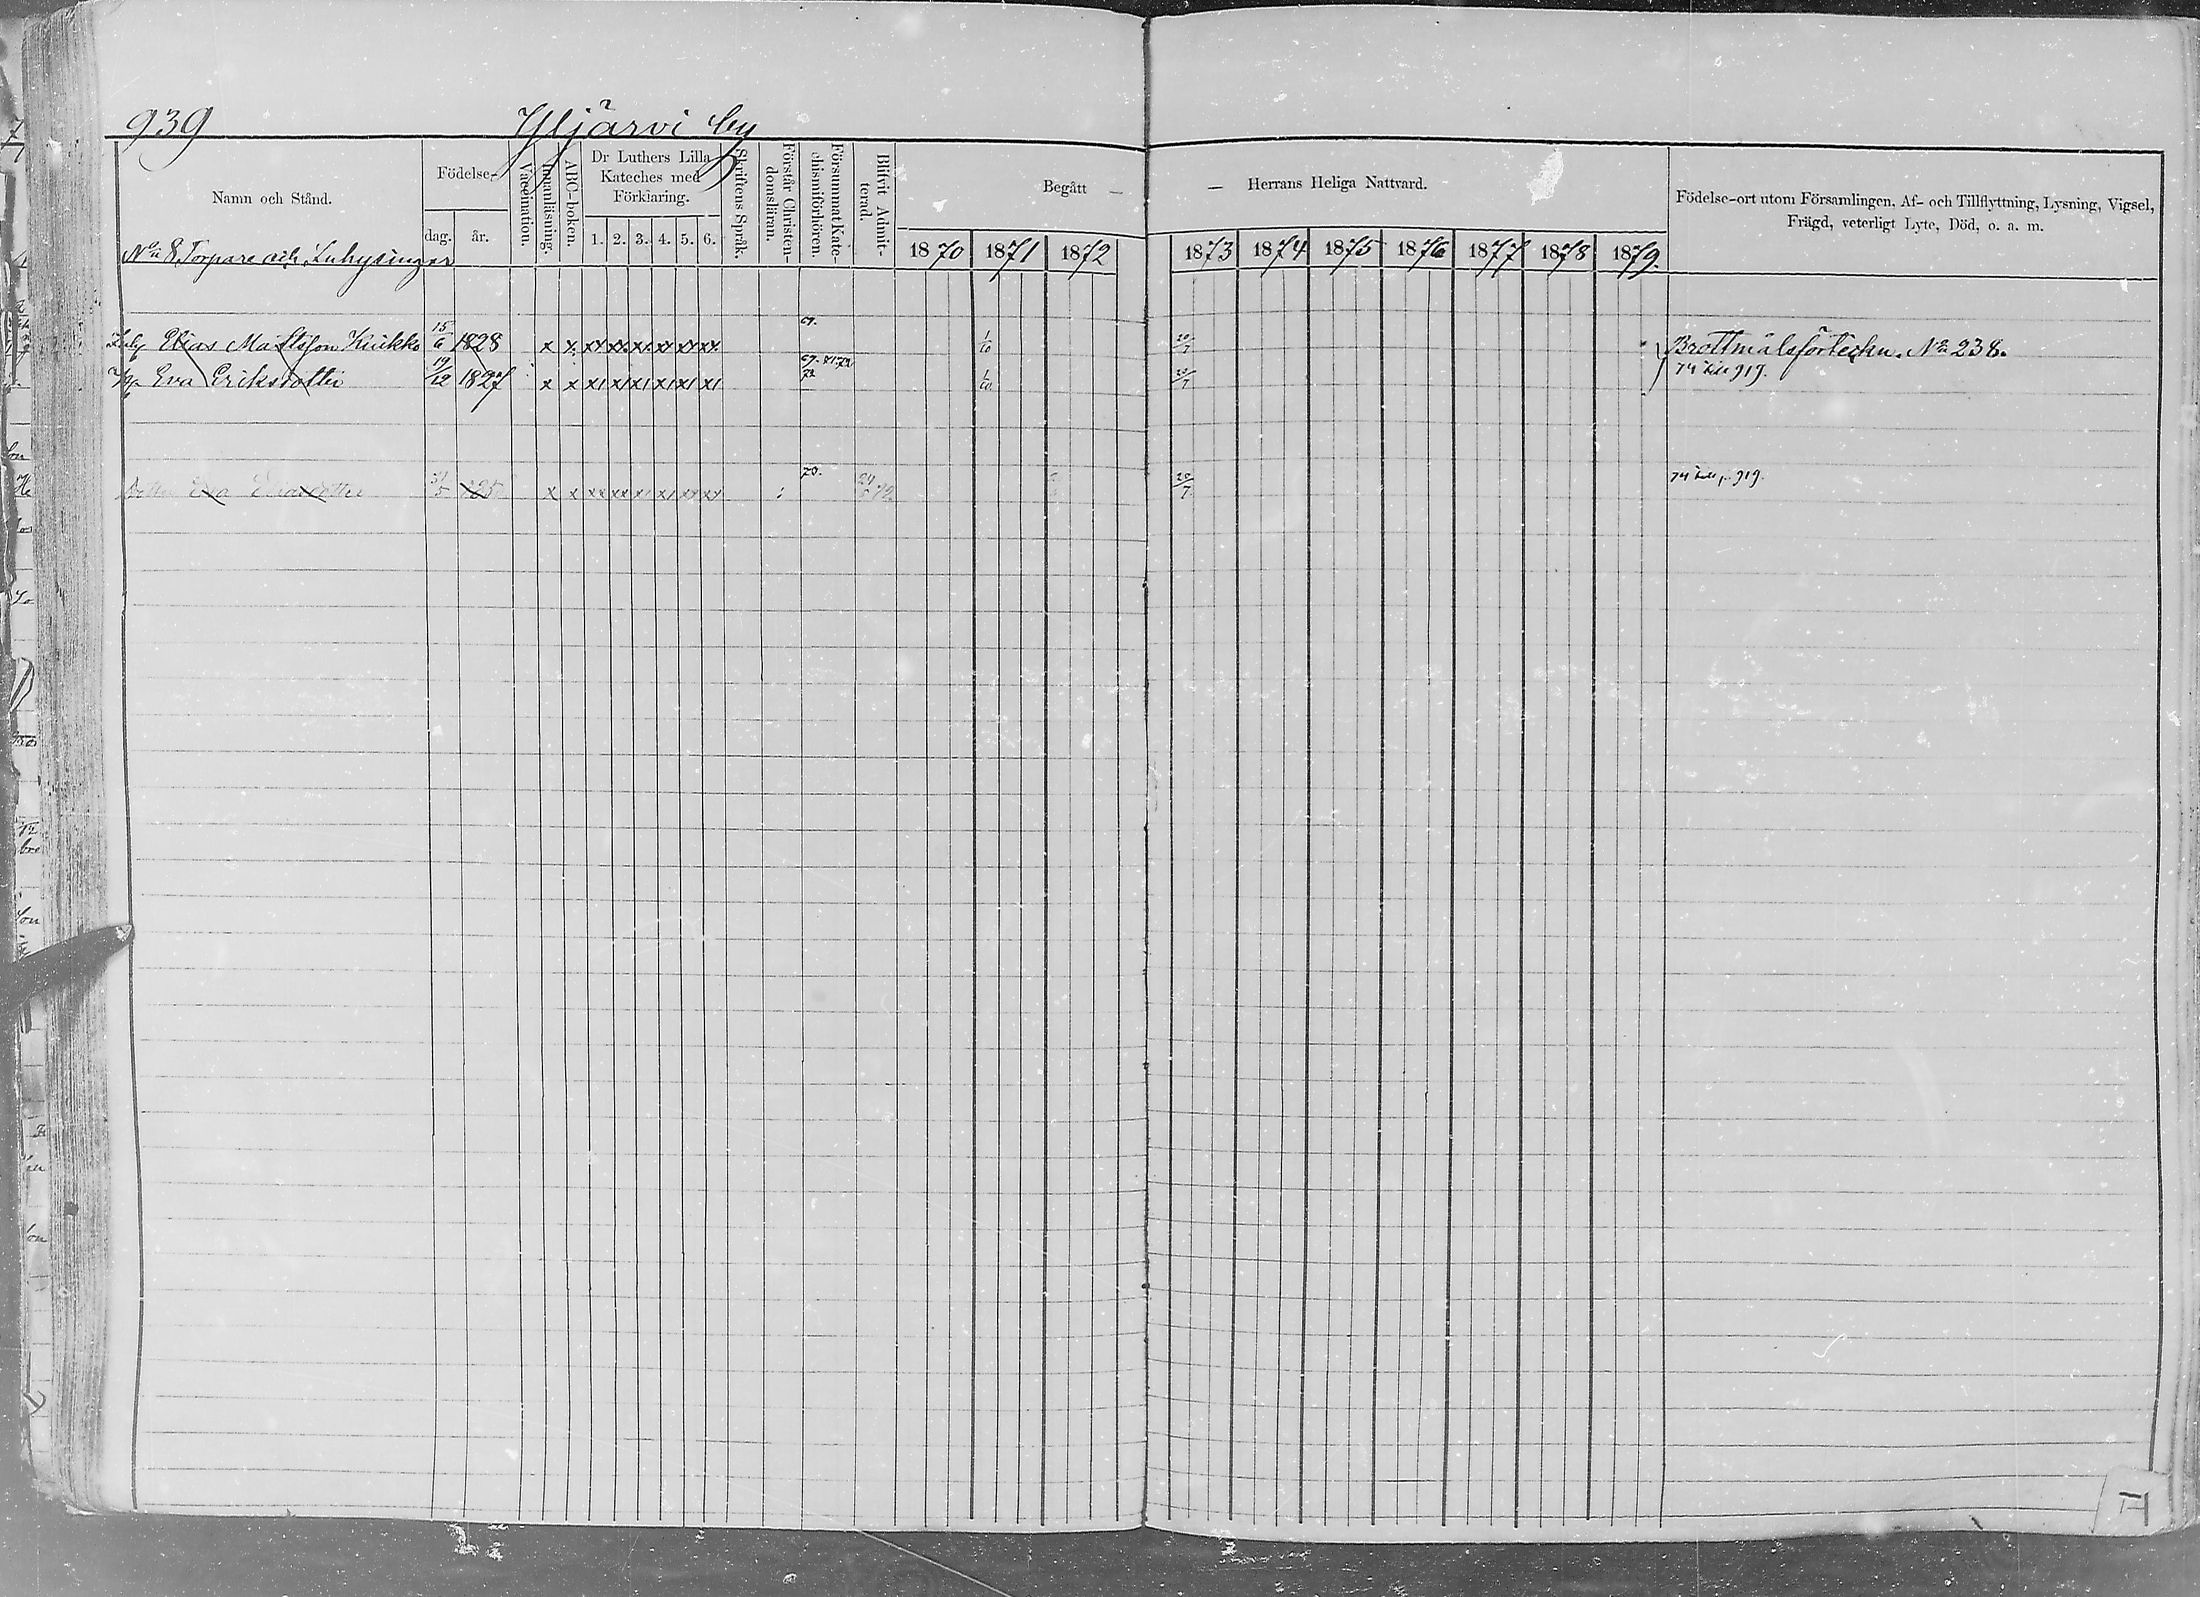 939 Yljärvi by
Namn och Stånd.
Födelse-
dag. år.
Vaccination.
Innanläsning.
ABC-boken.
Dr Luthers Lilla
Kateches med
Förklaring.
1. 2. 3. 4. 5. 6.
Skriftens Språk.
Förstår Christen-
domsläran.
Försummat Kate-
chismiförhören.
Blifvit Admit-
terad.
Begått — — Herrans Heliga Nattvard.
1870 1871 1872 1873 1874 1875 1876 1877 1878 1879.
Födelse-ort utom Församlingen, Af- och Tillflyttning, Lysning, Vigsel,
Frägd, veterligt Lyte, Död, o. a. m.
No 8, Torpare och Inhysingar
Inh Elias Mattsson Kiukko 15/6 1828 x x xx xx xx xx xx xx 1/10 20/7 Brottmålsförteckn. No 238.
Eva Eriksdotter 19/12 1827 x x x x x x x x 1/10 20/7 74 919.
Eva Eliasdotter x x 70. 72 20/7 74 919.